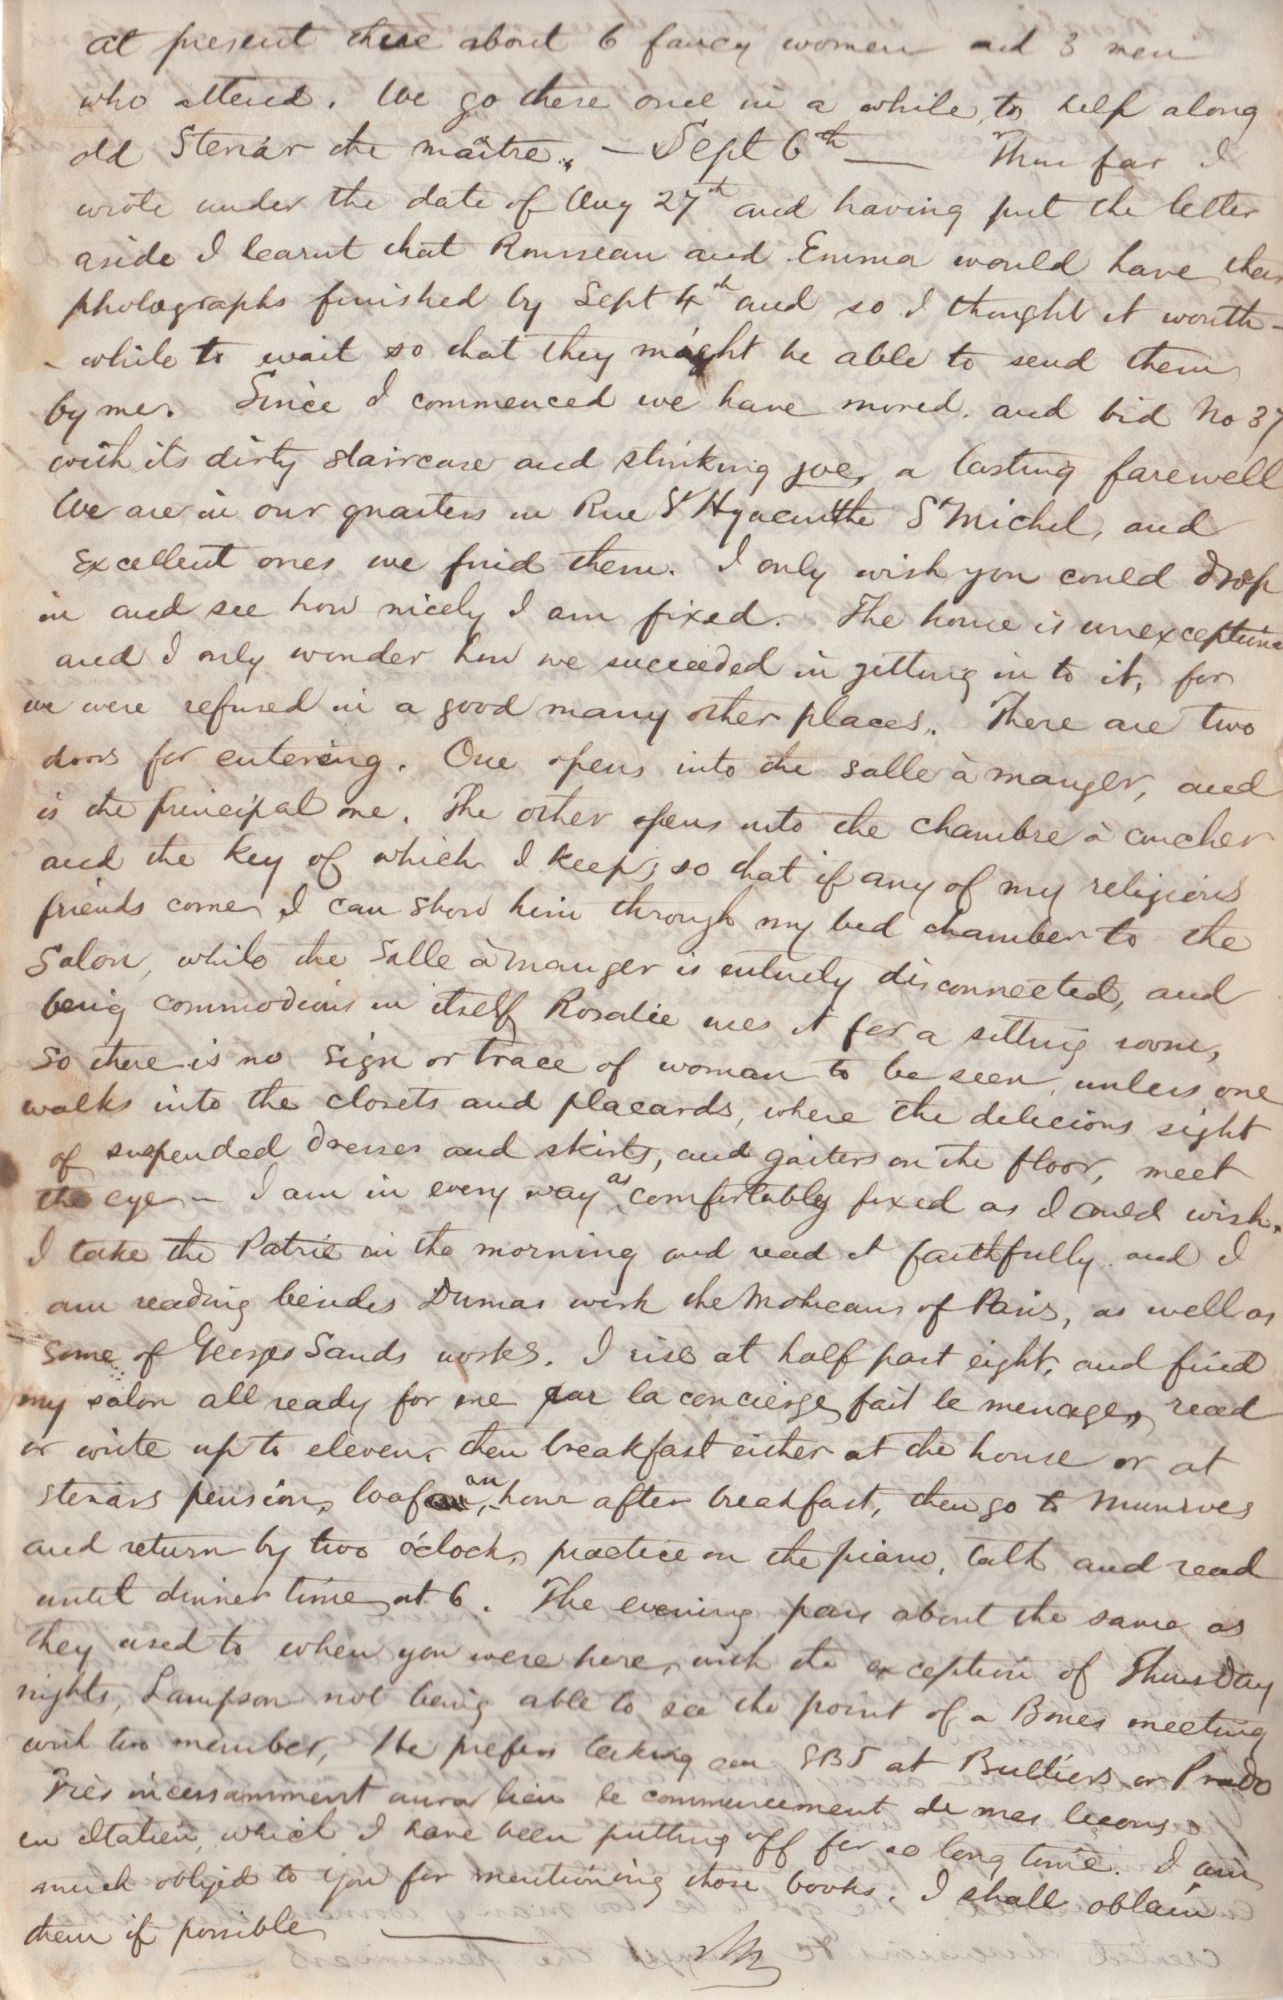 at present there about 6 fancy women and 3 men
who attend. We go there once in a while, to help along
old Stenar the maître. — Sept 6th — Thus far I
wrote under the date of Aug 27th and having put the letter
aside I learnt that Rousseau and Emma would have their
photographs finished by Sept 4th and so I thought it worth-
-while to wait so that they might be able to send them
by me. Since I commenced we have moved. and bid No 37
with its dirty staircase and stinking joe, a lasting farewell
We are in our quarters in Rue St Hyacinthe St Michel, and
excellent ones we find them. I only wish you could drop
in and see how nicely I am fixed. The house is unexceptiona
and I only wonder how we succeeded in getting in to it, for
we were refused in a good many other places. There are two
doors for entering. One opens into the salle à manger, and
is the principal one. The other opens into the chambre à coucher
and the key of which I keep, so that if any of my religious
friends come, I can show him through my bed chamber to the
Salon, while the Salle à manger is entirely disconnected, and
being commodious in itself Rosalie uses it for a sitting room,
so there is no sign or trace of woman to be seen unless one
walks into the closets and placards, where the delicious sight
of suspended dresses and skirts, and gaiters on the floor, meet
the eye — I am in every way as comfortably fixed as I could wish.
I take the Patrie in the morning and read it faithfully and I
am reading besides Dumas work the Mohicans of Paris, as well as
some of Georges Sands works. I rise at half past eight, and find
my salon all ready for me car la concierge fait le menage, read
or write up to eleven, then breakfast either at the house or at
Stenars pension, loaf an hour after breakfast, then go to Munroes
and return by two o'clock, practice on the piano, talk and read
until dinner time at 6. The evening pass about the same as
they used to when you were here, with the exception of Thursday
nights, Lampson not being able to see the point of a Bones meeting
with two member, He prefers taking an SBT at Bulliers or Prado
Très incessamment aura lieu le commencement de mes lecons
en Italien, which I have been putting off for so long time. I am
much obliged to you for mentioning those books. I shall obtain
them if possible —